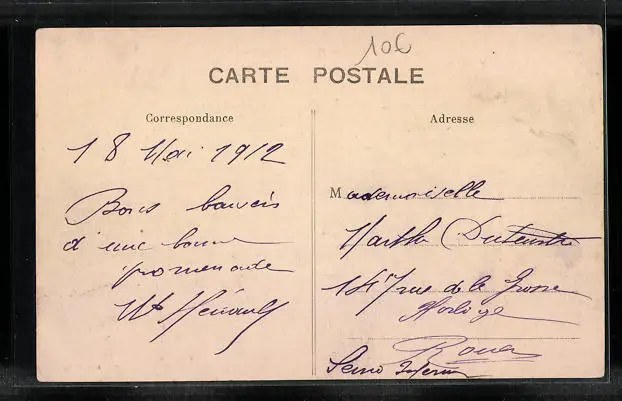 106
CARTE POSTALE
Correspondance
18 Mai 1912
Bons baisers
d'une bonne
promenade
Adresse
Mademoiselle
Marthe
147 rue de la Grosse
Horloge
Rouen
Seine Infer